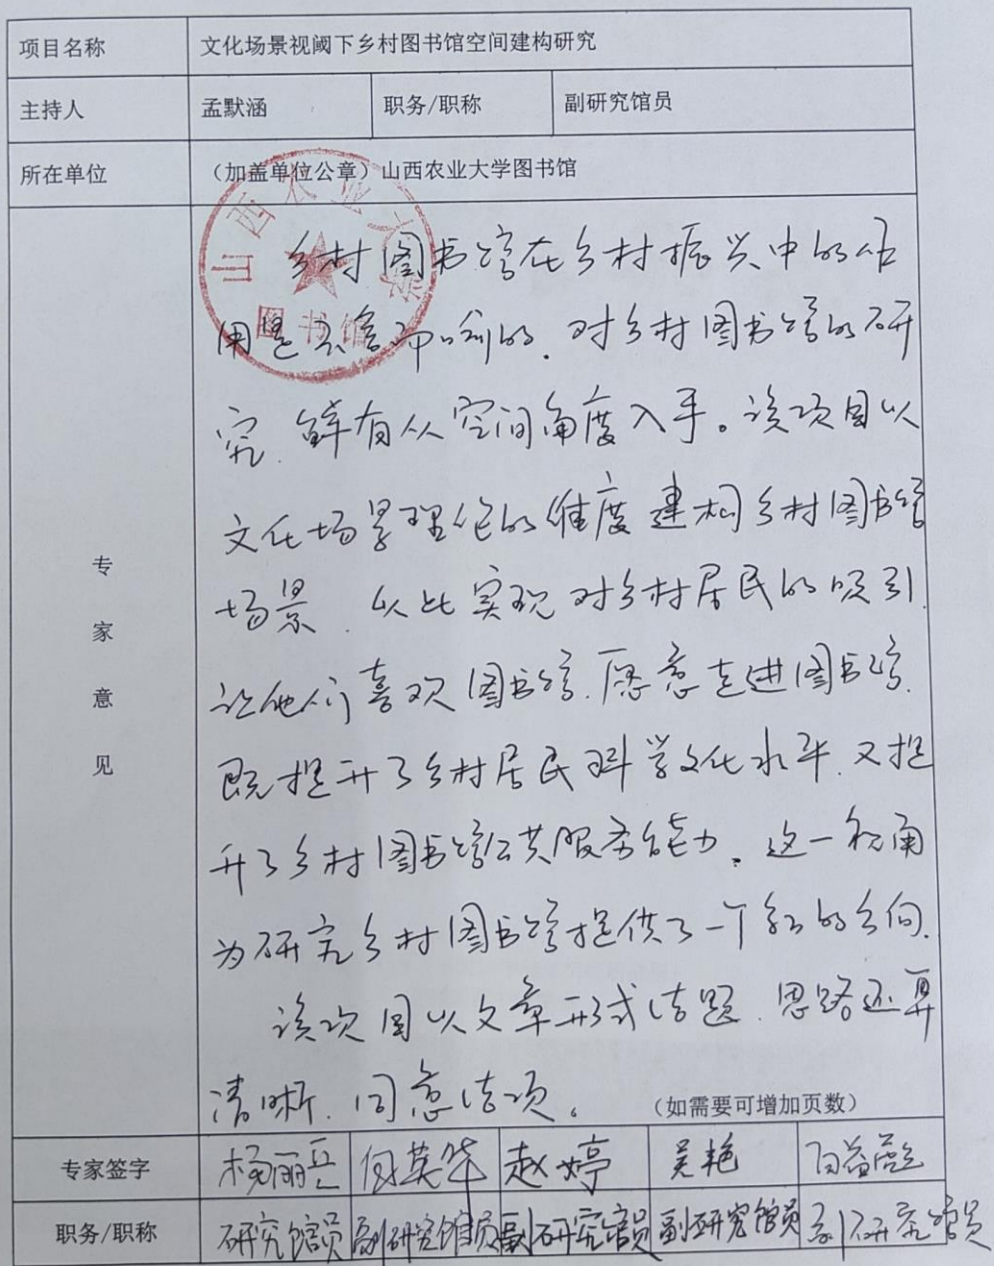 项目名称 文化场景视阈下乡村图书馆空间建构研究
主持人 孟默涵 职务/职称 副研究馆员
所在单位 (加盖单位公章)山西农业大学图书馆
山西农业大学
图书馆
专家意见
乡村图书馆在乡村振兴中的作
用是不言而喻的.对乡村图书馆的研
究.鲜有从空间角度入手。该项目以
文化场景理论的维度建构乡村图书馆
场景.以此实现对乡村居民的吸引.
让他们喜欢图书馆.愿意走进图书馆.
既提升了乡村居民科学文化水平.又提
升了乡村图书馆公共服务能力。这一视角
为研究乡村图书馆提供了一个新的方向.
该项目以文章形式结题.思路还算
清晰.同意结项。
(如需要可增加页数)
专家签字 杨丽 何英华 赵婷 吴艳
职务/职称 研究馆员 副研究馆员 副研究馆员 副研究馆员 副研究馆员